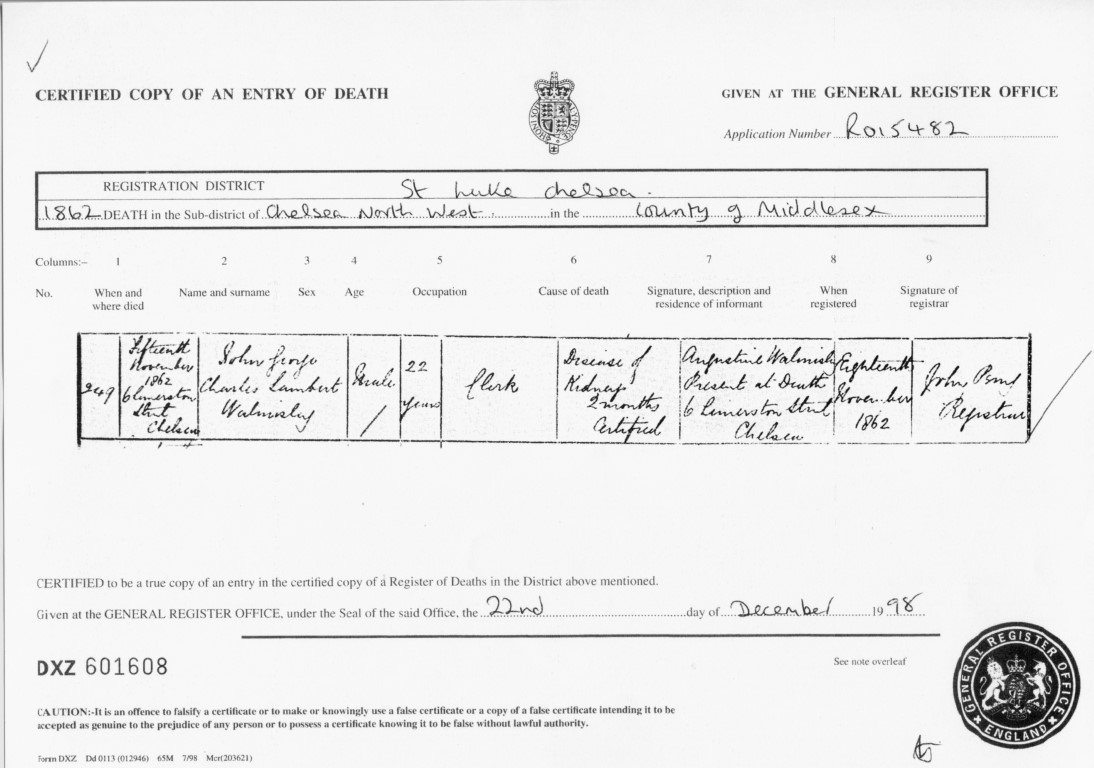 CERTIFIED COPY OF AN ENTRY OF DEATH
GIVEN AT THE GENERAL REGISTER OFFICE
Application Number R015482
REGISTRATION DISTRICT St Luke Chelsea.
1862 DEATH in the Sub-district of Chelsea North West in the County of Middlesex
Columns:- 1 2 3 4 5 6 7 8 9
No. When and where died Name and surname Sex Age Occupation Cause of death Signature, description and residence of informant When registered Signature of registrar
249
Fifteenth
November
1862
6 Limerston
Street
Chelsea
John George
Charles Lambert
Walmisley
Male
22
years
Clerk
Disease of
Kidneys
2 months
Certified
Augustine Walmisley
Present at Death
6 Limerston Street
Chelsea
Eighteenth
November
1862
John
Registrar
CERTIFIED to be a true copy of an entry in the certified copy of a Register of Deaths in the District above mentioned.
Given at the GENERAL REGISTER OFFICE, under the Seal of the said Office, the 22nd day of December 1998
DXZ 601608
See note overleaf
CAUTION:-It is an offence to falsify a certificate or to make or knowingly use a false certificate or a copy of a false certificate intending it to be
accepted as genuine to the prejudice of any person or to possess a certificate knowing it to be false without lawful authority.
Form DXZ Dd 0113 (012946) 65M 7/98 Mcr(203621)
GENERAL REGISTER OFFICE
ENGLAND